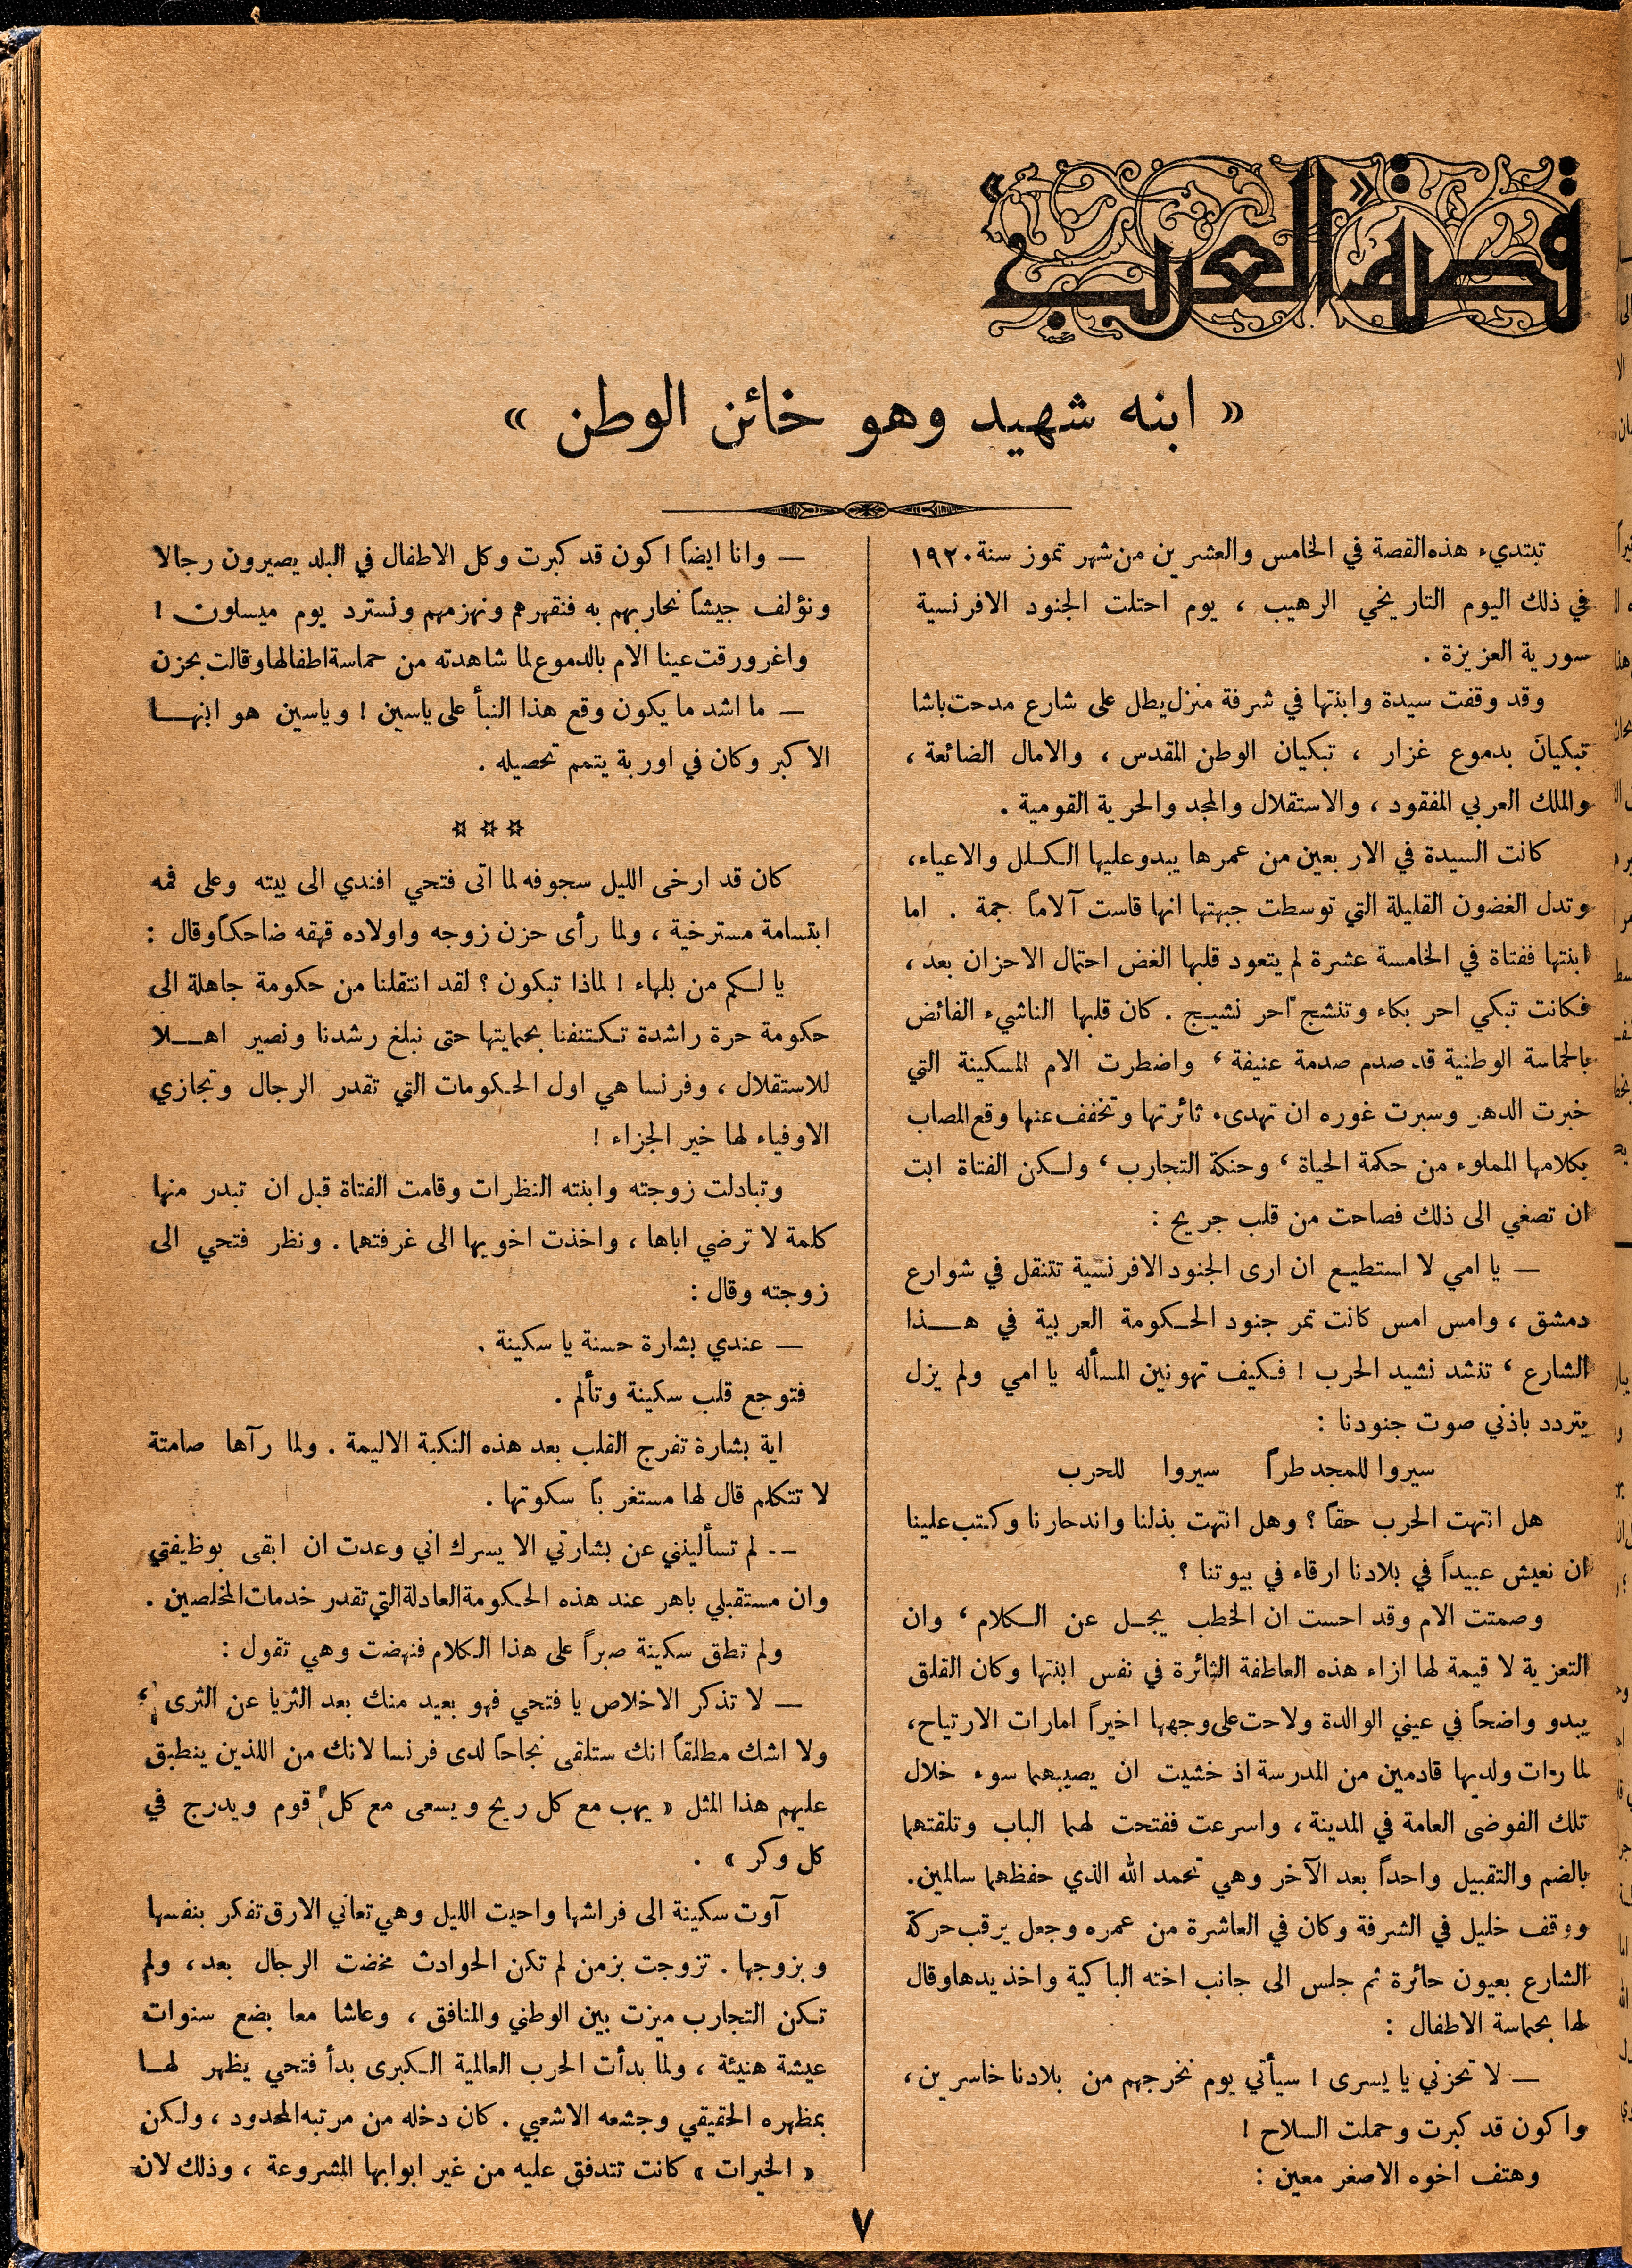 قصة «العرب»
« ابنه شهيد وهو خائن الوطن »
تبتديء هذه القصة في الخامس والعشرين من شهر تموز سنة ١٩٢٠
في ذلك اليوم التاريخي الرهيب ، يوم احتلت الجنود الافرنسية
سورية العزيزة .
وقد وقفت سيدة وابنتها في شرفة منزل يطل على شارع مدحت باشا
تبكيان بدموع غزار ، تبكيان الوطن المقدس ، والامال الضائعة ،
والملك العربي المفقود ، والاستقلال والمجد والحرية القومية .
كانت السيدة في الاربعين من عمرها يبدو عليها الكلل والاعياء،
وتدل الغضون القليلة التي توسطت جبهتها انها قاست آلاماً جمة . اما
ابنتها ففتاة في الخامسة عشرة لم يتعود قلبها الغض احتمال الاحزان بعد ،
فكانت تبكي احر بكاء وتنشج احر نشيج . كان قلبها الناشيء الفائض
بالحماسة الوطنية قد صدم صدمة عنيفة ، واضطرت الام المسكينة التي
خبرت الدهر وسبرت غوره ان تهدىء ثائرتها وتخفف عنها وقع المصاب
بكلامها المملوء من حكمة الحياة ، وحنكة التجارب ، ولكن الفتاة ابت
ان تصغي الى ذلك فصاحت من قلب جريح :
— يا امي لا استطيع ان ارى الجنود الافرنسية تتنقل في شوارع
دمشق ، وامس امس كانت تمر جنود الحكومة العربية في هذا
الشارع ، تنشد نشيد الحرب ! فكيف تهونين المسأله يا امي ولم يزل
يتردد باذني صوت جنودنا :
سيروا للمجد طراً سيروا للحرب
هل انتهت الحرب حقاً ؟ وهل انتهت بذلنا واندحارنا وكتب علينا
ان نعيش عبيداً في بلادنا ارقاء في بيوتنا ؟
وصمتت الام وقد احست ان الخطب يجل عن الكلام ، وان
التعزية لا قيمة لها ازاء هذه العاطفة الثائرة في نفس ابنتها وكان القلق
يبدو واضحاً في عيني الوالدة ولاحت على وجهها اخيراً امارات الارتياح،
لما رءات ولديها قادمين من المدرسة اذ خشيت ان يصيبهما سوء خلال
تلك الفوضى العامة في المدينة ، واسرعت ففتحت لهما الباب وتلقتهما
بالضم والتقبيل واحداً بعد الآخر وهي تحمد الله الذي حفظهما سالمين.
ووقف خليل في الشرفة وكان في العاشرة من عمره وجعل يرقب حركة
الشارع بعيون حائرة ثم جلس الى جانب اخته الباكية واخذ يدها وقال
لها بحماسة الاطفال :
— لا تحزني يا يسرى ! سيأتي يوم نخرجهم من بلادنا خاسرين ،
واكون قد كبرت وحملت السلاح !
وهتف اخوه الاصغر معين :
— وانا ايضاً اكون قد كبرت وكل الاطفال في البلد يصيرون رجالا
ونؤلف جيشاً نحاربهم به فنقهرهم ونهزمهم ونسترد يوم ميسلون !
واغرورقت عينا الام بالدموع لما شاهدته من حماسة اطفالها وقالت بحزن
— ما اشد ما يكون وقع هذا النبأ على ياسين ! وياسين هو ابنها
الاكبر وكان في اوربة يتمم تحصيله .
* * *
كان قد ارخى الليل سجوفه لما اتى فتحي افندي الى بيته وعلى فمه
ابتسامة مسترخية ، ولما رأى حزن زوجه واولاده قهقه ضاحكاً وقال :
يا لكم من بلهاء ! لماذا تبكون ؟ لقد انتقلنا من حكومة جاهلة الى
حكومة حرة راشدة تكتنفنا بحمايتها حتى نبلغ رشدنا ونصير اهلا
للاستقلال ، وفرنسا هي اول الحكومات التي تقدر الرجال وتجازي
الاوفياء لها خير الجزاء !
وتبادلت زوجته وابنته النظرات وقامت الفتاة قبل ان تبدر منها
كلمة لا ترضي اباها ، واخذت اخويها الى غرفتهما . ونظر فتحي الى
زوجته وقال :
— عندي بشارة حسنة يا سكينة .
فتوجع قلب سكينة وتألم .
اية بشارة تفرج القلب بعد هذه النكبة الاليمة . ولما رآها صامتة
لا تتكلم قال لها مستغرباً سكوتها .
— لم تسألينني عن بشارتي الا يسرك اني وعدت ان ابقى بوظيفتي
وان مستقبلي باهر عند هذه الحكومة العادلة التي تقدر خدمات المخلصين .
ولم تطق سكينة صبراً على هذا الكلام فنهضت وهي تقول :
— لا تذكر الاخلاص يا فتحي فهو بعيد منك بعد الثريا عن الثرى ،
ولا اشك مطلقاً انك ستلقى نجاحاً لدى فرنسا لانك من اللذين ينطبق
عليهم هذا المثل « يهب مع كل ريح ويسعى مع كل قوم ويدرج في
كل وكر » .
آوت سكينة الى فراشها واحيت الليل وهي تعاني الارق تفكر بنفسها
وبزوجها . تزوجت بزمن لم تكن الحوادث مخضت الرجال بعد ، ولم
تكن التجارب ميزت بين الوطني والمنافق ، وعاشا معا بضع سنوات
عيشة هنيئة ، ولما بدأت الحرب العالمية الكبرى بدأ فتحي يظهر لها
بمظهره الحقيقي وجشعه الاشعبي . كان دخله من مرتبه المحدود ، ولكن
« الخيرات » كانت تتدفق عليه من غير ابوابها المشروعة ، وذلك لان
٧